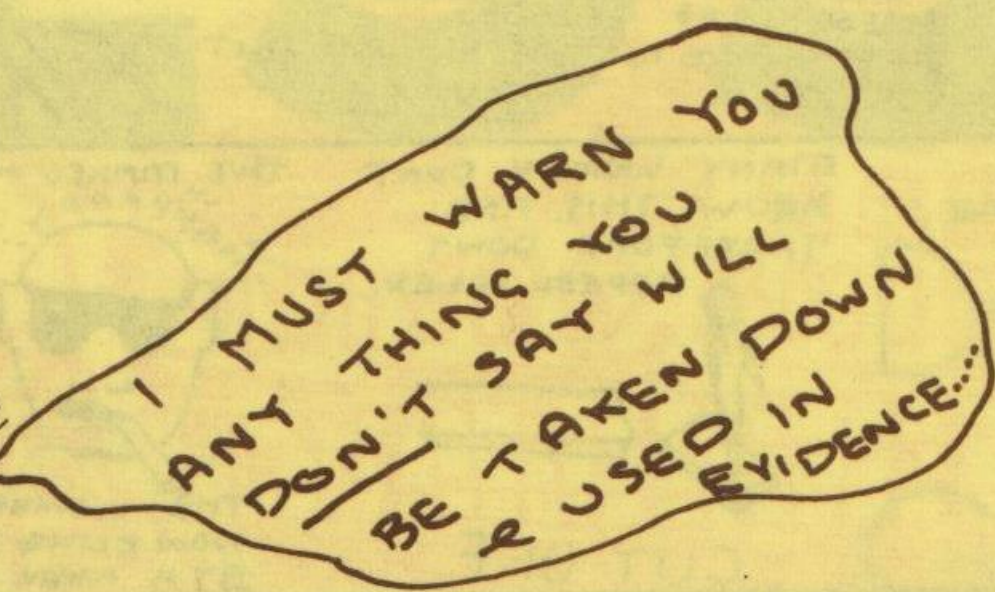 I MUST WARN YOU
ANY THING YOU
DON'T SAY WILL
BE TAKEN DOWN
& USED IN
EVIDENCE....